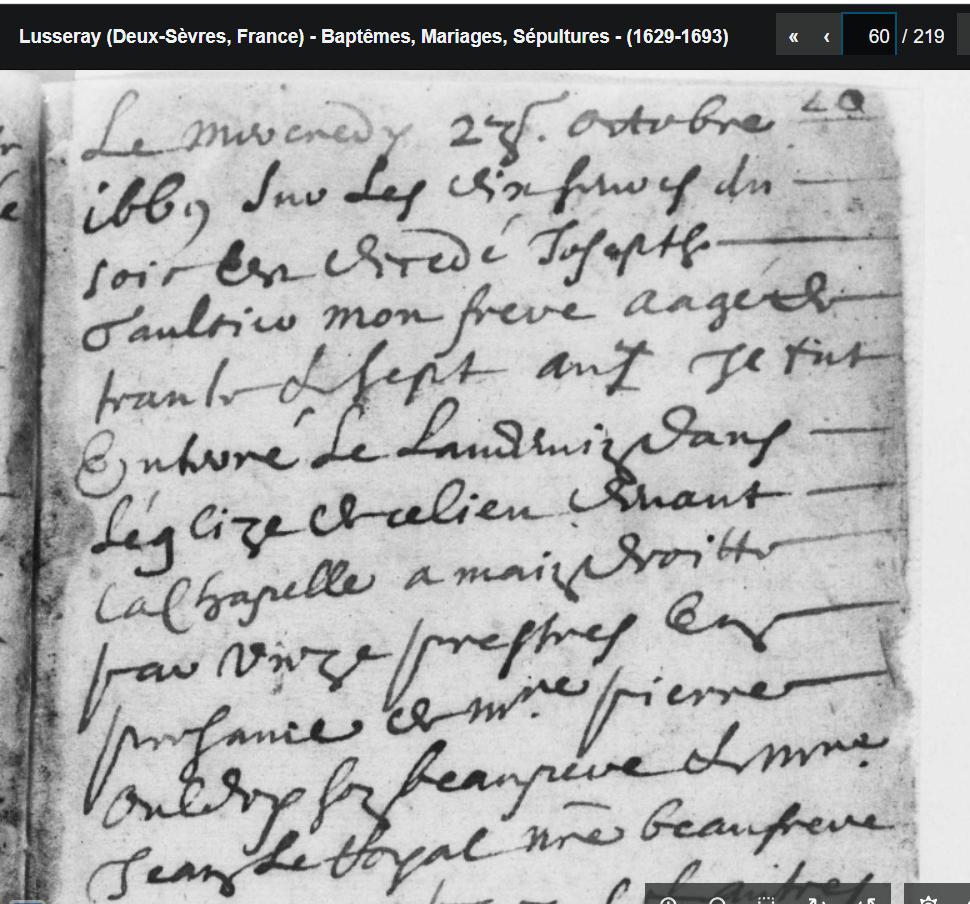 Lusseray (Deux-Sèvres, France) - Baptêmes, Mariages, Sépultures - (1629-1693)
« ‹ 60 / 219
20
Le mercredy octobre
sur les dix heures du
soir est decedé Josepth
mon frere aagé de
trante & sept ans Je fut
Enterré le Landemin dans
L'églize de ce lieu devant
la Chapelle a main droitte
par unze prestres En
presance de mre pierre
son beaupere & mre
Jean Le Royal nre beaufrere
autres